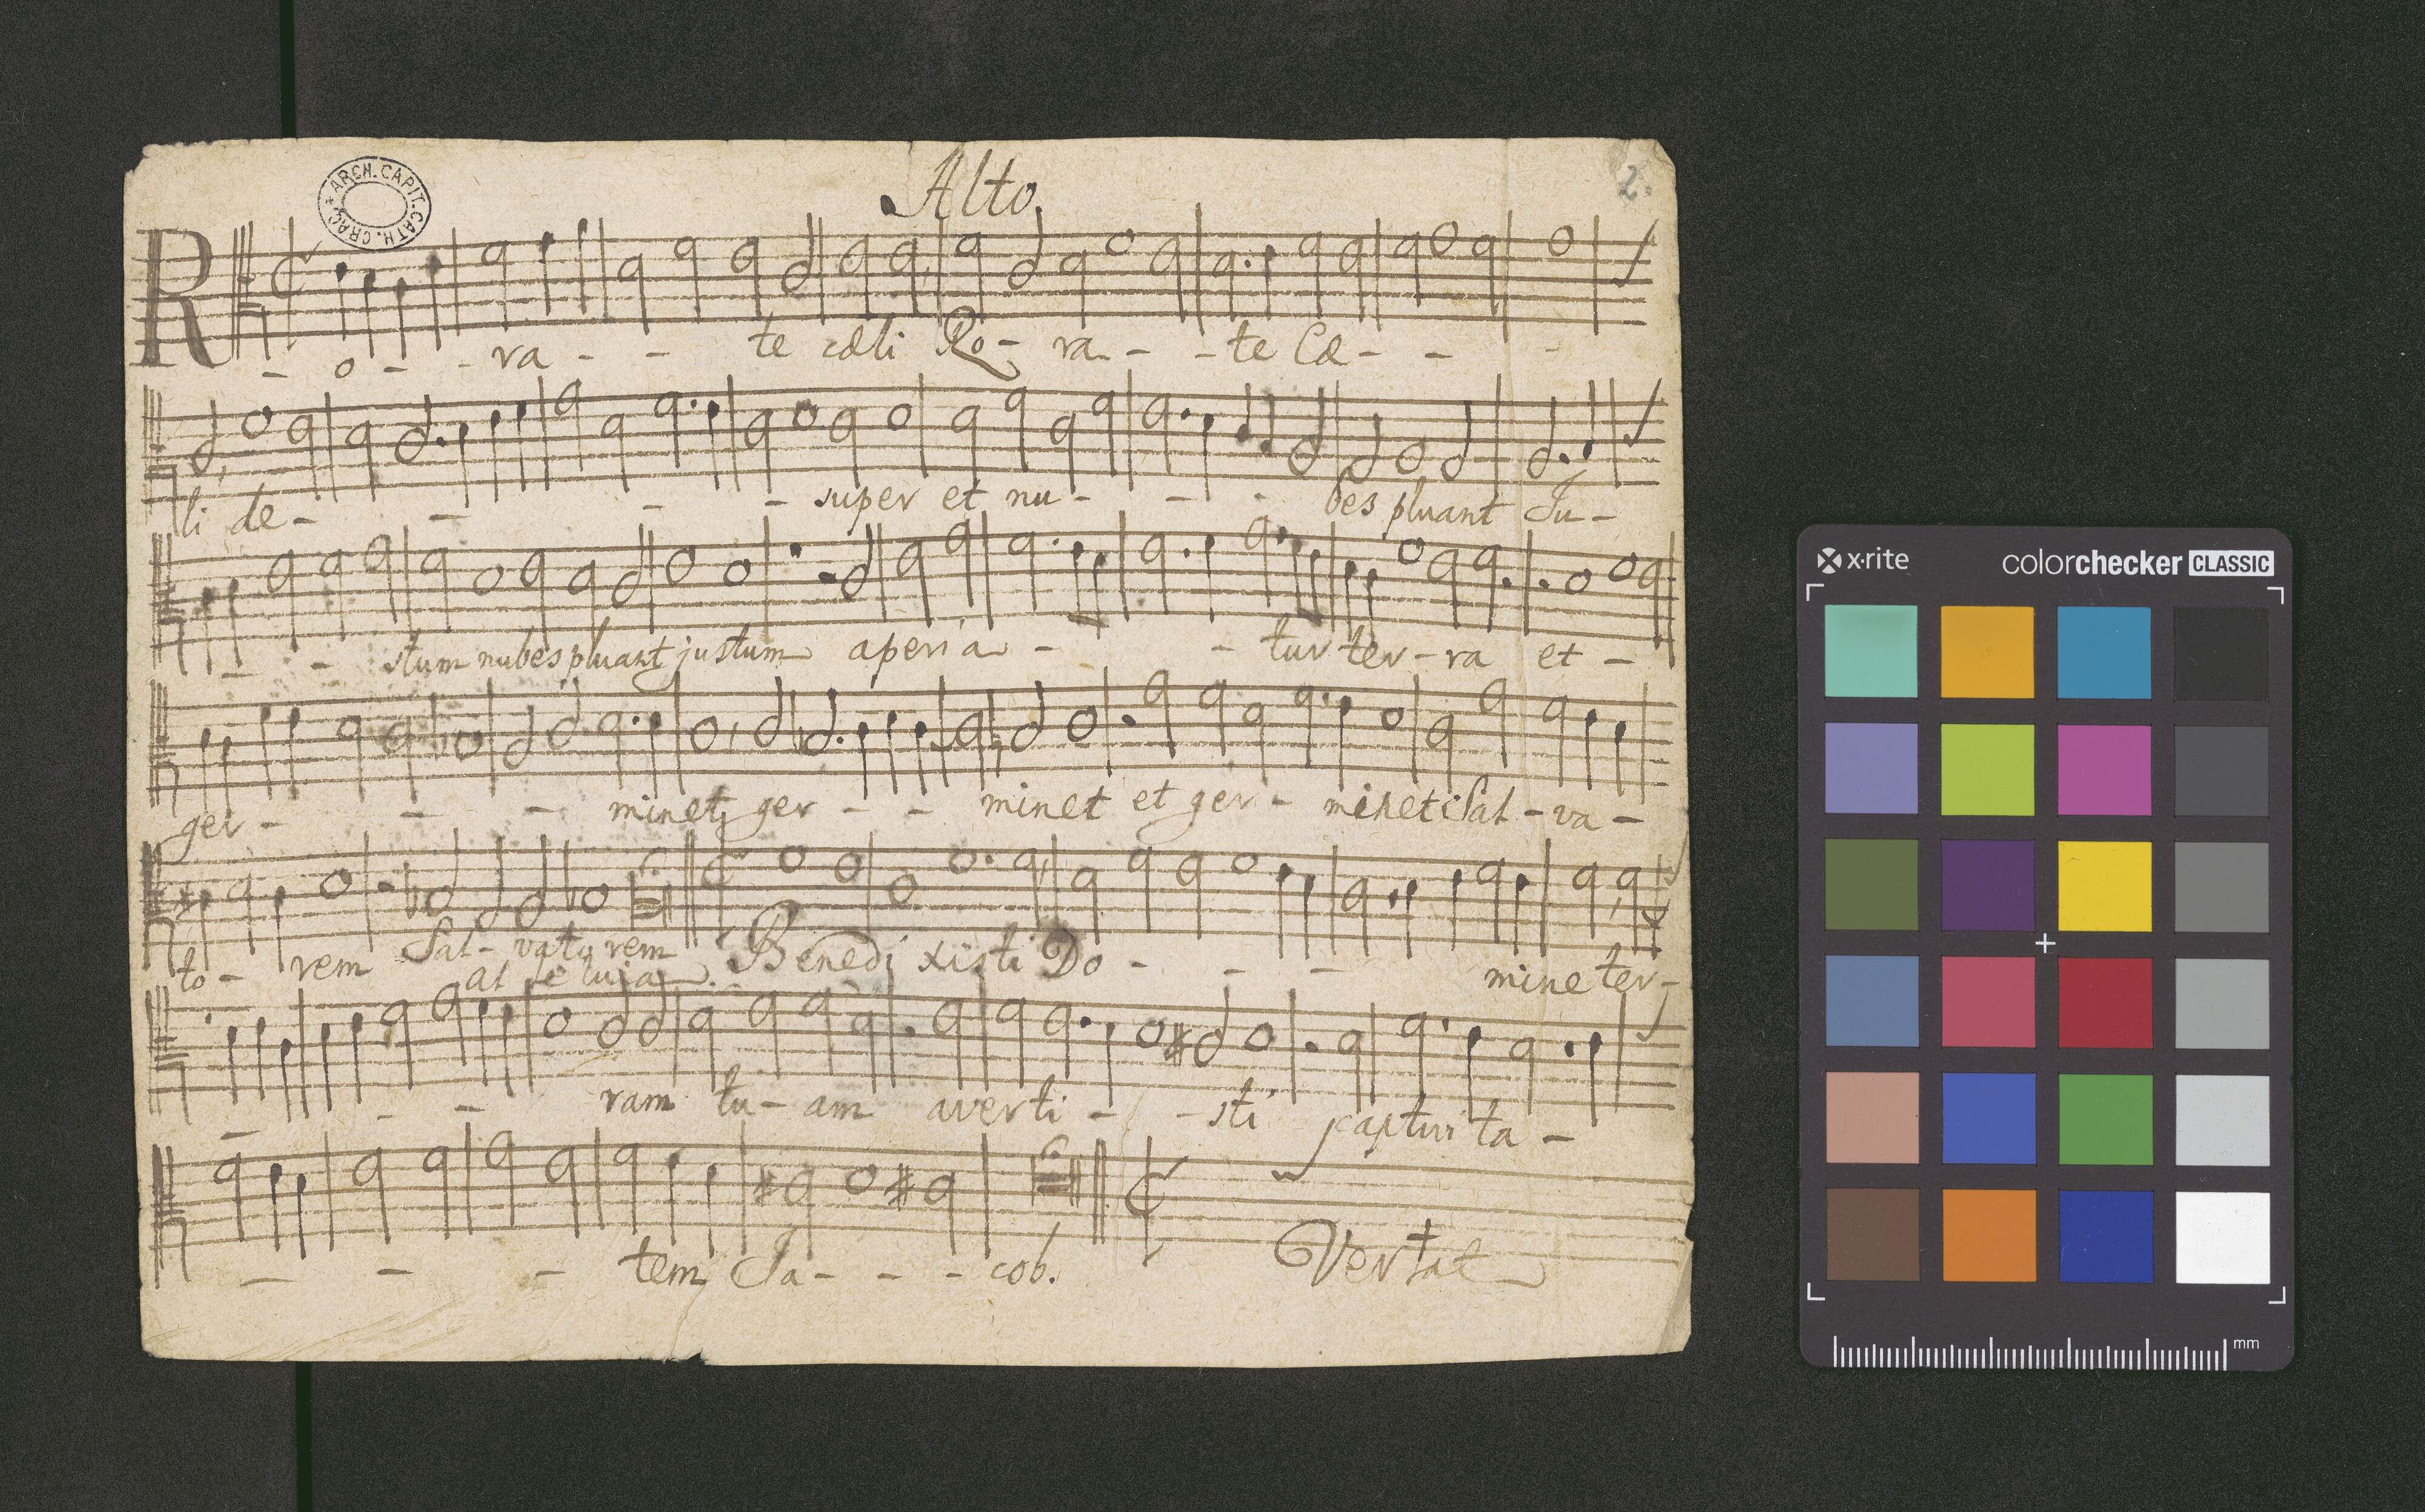 Alto
2.
ARCH. CAPIT. CATH. CRAC.
R - o - - ra - - te cæli Ro - ra - - te Cæ - - -
li de - - - - super et nu - - - bes pluant Ju -
- - stum nubes pluant justum aperia - - tur ter - ra et -
ger - - - minet ger - - minet et ger - minet Sal - va -
to - rem Sal - vato rem Benedi xisti Do - - - mine ter -
al le luia
- - - ram tu - am averti - - sti captivi ta -
- - - tem Ja - - - cob. Vertat
x·rite colorchecker CLASSIC
mm